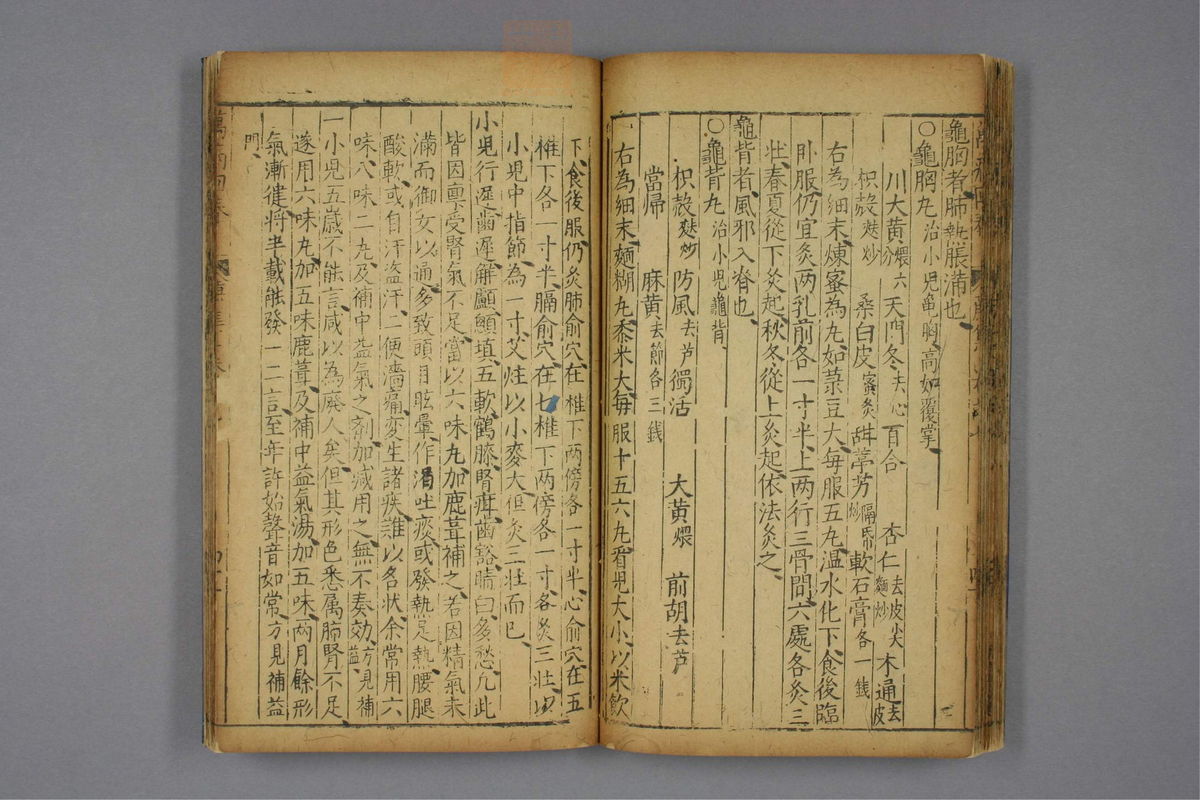 龜胸者肺熱脹滿也
○龜胸丸 治小兒龜胸高如覆掌
川大黄煨六分 天門冬去心 百合 杏仁去皮尖麵炒 木通去皮
枳殻麩炒 桑白皮蜜炙 甜葶藶隔紙炒 軟石膏各一錢
右為細末煉蜜為丸如菉豆大每服五丸温水化下食後臨
卧服仍宜灸两乳前各一寸半上两行三骨間六處各灸三
壮春夏從下灸起秋冬從上灸起依法灸之
龜背者風邪入脊也
○龜背丸 治小兒龜背
枳殻麩炒 防風去芦 獨活 大黄煨 前胡去芦
當帰 麻黄去節各三錢
右為細末麵糊丸黍米大每服十五六丸看兒大小以米飲
下食後服仍灸肺俞穴在 椎下两傍各一寸半心俞穴在五
椎下各一寸半膈俞穴在七椎下两傍各一寸半各灸三壮以
小兒中指節為一寸艾炷以小麥大但灸三壮而已
小兒行遲齒遲解顱顖填五軟鶴膝腎疳齒豁睛白多愁凡此
皆因禀受腎氣不足當以六味丸加鹿茸補之若因精氣未
滿而御女以通多致頭目眩暈作渴吐痰或發熱足熱腰腿
酸軟或自汗盗汗二便濇痛变生諸疾難以名状余常用六
味八味二丸及補中益氣之剤加减用之無不奏効方見補益
一小兒五嵗不能言咸以為廢人矣但其形色悉属肺腎不足
遂用六味丸加五味鹿茸及補中益氣湯加五味两月餘形
氣漸健將半載能發一二言至年許始聲音如常方見補益
門